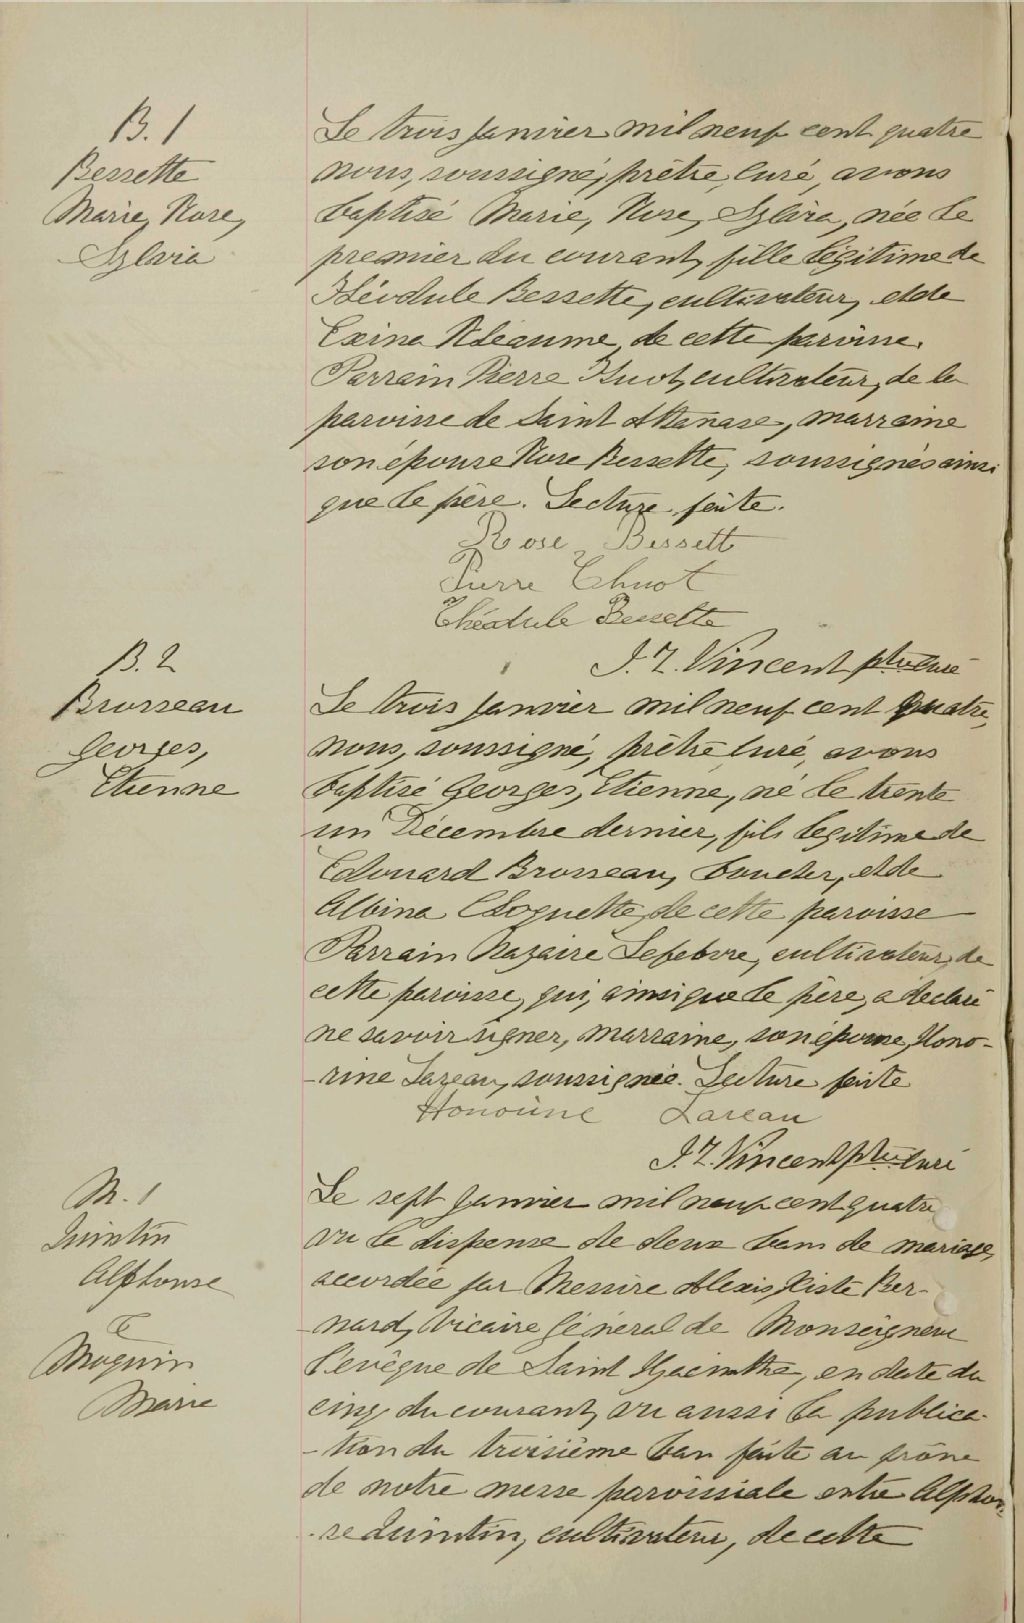 B. 1
Bessette
Marie, Rose,
Sylvia
Le trois janvier mil neuf cent quatre
nous, soussigné, prêtre, curé, avons
baptisé Marie, Rose, Sylvia, née le
premier du courant, fille légitime de
Théodule Bessette, cultivateur, et de
Exina Rhéaume, de cette paroisse.
Parrain Pierre Thuot, cultivateur, de la
paroisse de Saint Athanase, marraine
son épouse Rose Bessette, soussignés ainsi
que le père. Lecture faite.
Rose Bessett
Pierre Thuot
Théodule Bessette
J. Z. Vincent ptre curé
B. 2
Brosseau
Georges,
Etienne
Le trois janvier mil neuf cent quatre,
nous, soussigné, prêtre curé, avons
baptisé Georges, Etienne, né le trente
un Décembre dernier, fils légitime de
Edouard Brosseau, boucher, et de
Albina Choquette, de cette paroisse
Parrain Nazaire Lefebvre, cultivateur, de
cette paroisse, qui, ainsi que le père, a déclaré
ne savoir signer, marraine, son épouse, Hono-
-rine Lareau, soussignée. Lecture faite
Honorine Lareau
J. Z. Vincent ptre curé
M. 1
Quintin
Alphonse
&
Moquin
Marie
Le sept Janvier mil neuf cent quatre
vu la dispense de deux bans de mariage,
accordée par Messire Alexis, Xiste Ber-
-nard, Vicaire Général de Monseigneur
l'évêque de Saint Hyacinthe, en date du
cinq du courant, vu aussi la publica-
-tion du troisième ban faite au prône
de notre messe paroissiale entre Alphon-
-se Quintin, cultivateur, de cette